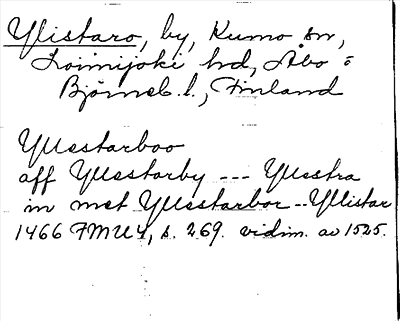 Ylistaro, by, Kumo sn,
Loimijoki hd, Åbo o
Björneb. l., Finland
Yllestarboo
aff Yllestarby --- Yllestra
in met Yllestarbor -- Yllistar
1466 FMU 4, s. 269. vidim. av 1525.